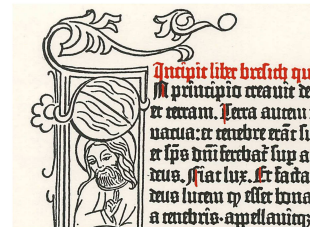 Incipit liber bresich qu
A principio creauit de
et terram. Terra autem
uacua: et tenebre erāt su
et sp̄s dn̄i ferebat᷑ sup a
deus. Fiat lux. Et facta
deus lucem ꝙ esset bona
a tenebris. appellauitqȝ